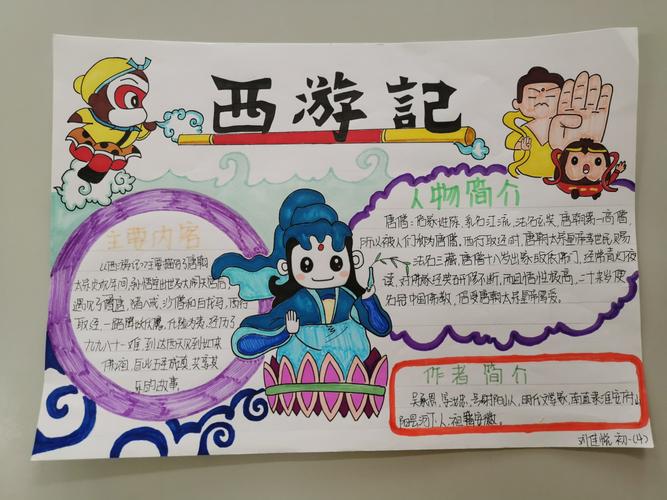 西游記
主要内容
《西游记》主要描写了唐朝
太宗贞观年间,孙悟空出世及大闹天宫后
遇见了唐僧,猪八戒,沙僧和白龙马,西行
取经,一路降妖伏魔,化险为夷,经历了
九九八十一难,到达西天见到如来
佛祖,最终五圣成真,
的故事
人物简介
唐僧:俗家姓陈,乳名江流,法名玄奘,唐朝第一高僧,
所以被人们称为唐僧,西行取经时,唐朝太宗皇帝李世民赐
法名三藏,唐僧十八岁出家皈依佛门,经常青灯夜
读,对佛家经典研修不断,而且悟性极高,二十来岁便
名冠中国佛教,倍受唐朝太宗皇帝喜爱。
作者简介
吴承恩,字汝忠,号射阳山人,明代文学家,南直隶淮安府山
阳县河下人,祖籍安徽。
刘佳悦 初一(4)